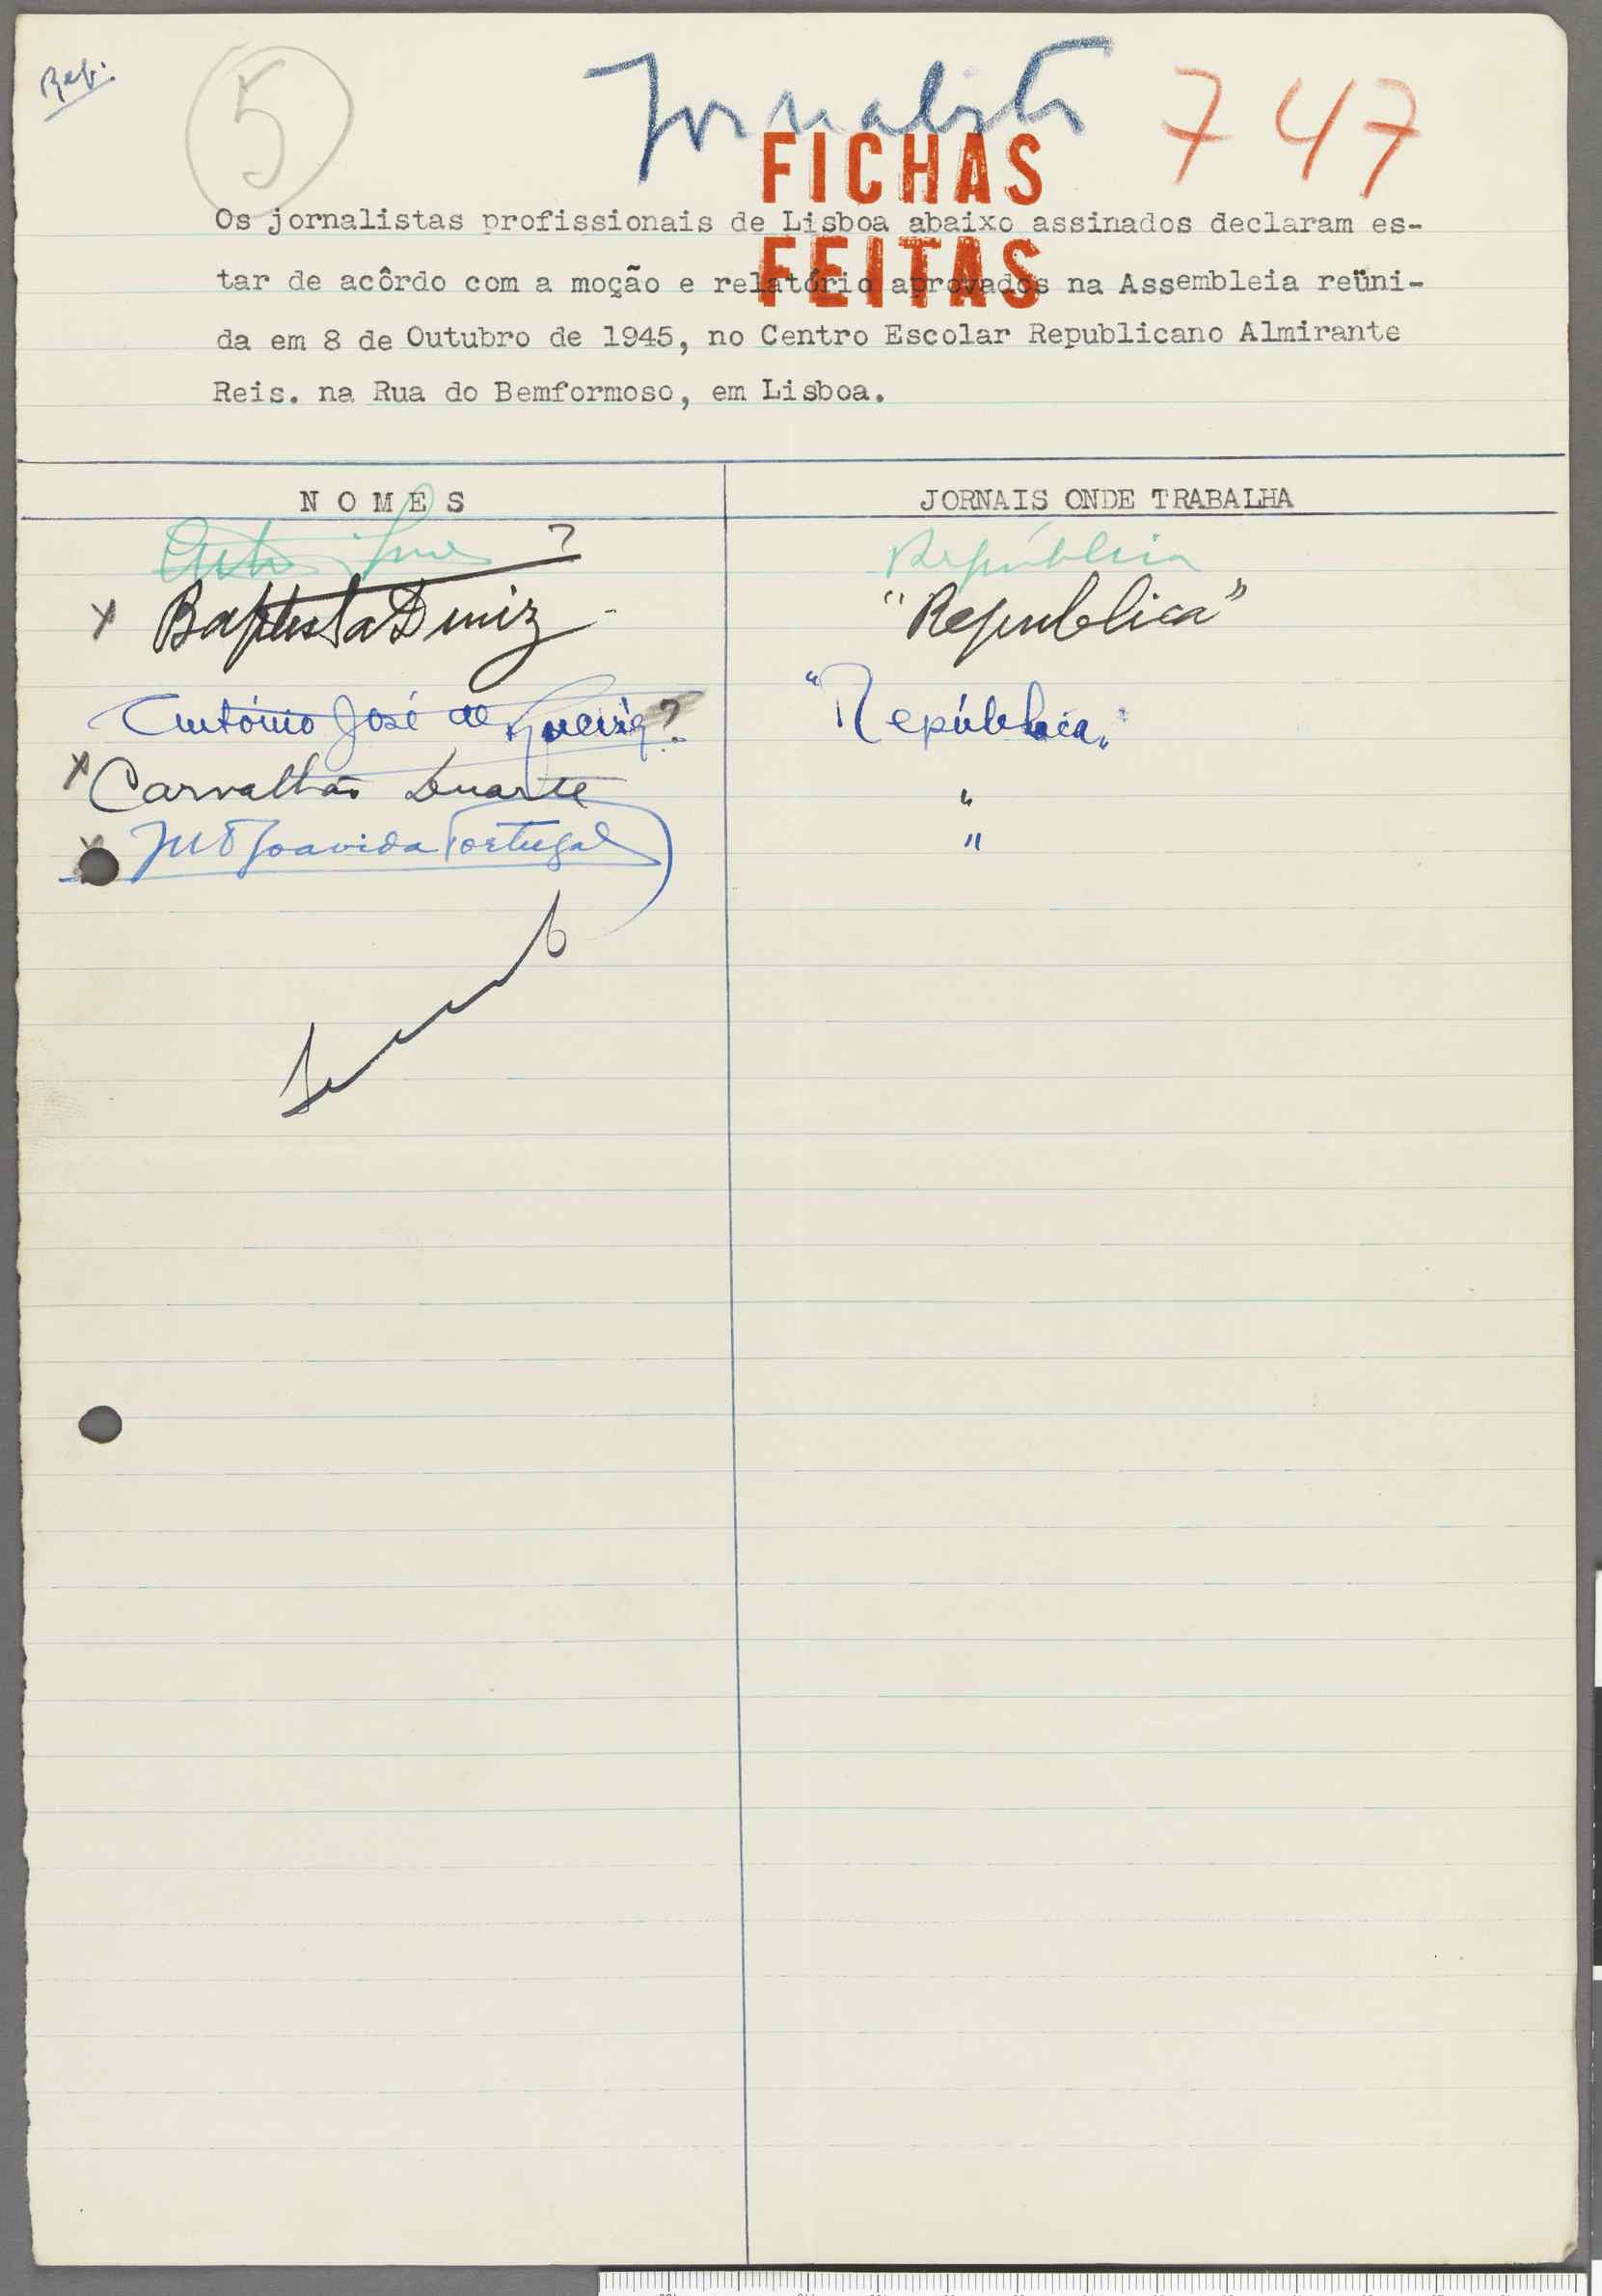 Rep.
5
Jornalistas 747
FICHAS
Os jornalistas profissionais de Lisboa abaixo assinados declaram es-
FEITAS
tar de acôrdo com a moção e relatório aprovados na Assembleia reüni-
da em 8 de Outubro de 1945, no Centro Escolar Republicano Almirante
Reis. na Rua do Bemformoso, em Lisboa.
NOMES JORNAIS ONDE TRABALHA
? República
x Baptista Diniz "Republica"
António José de ? "República"
x Carvalhão Duarte "
x Boavida Portugal "